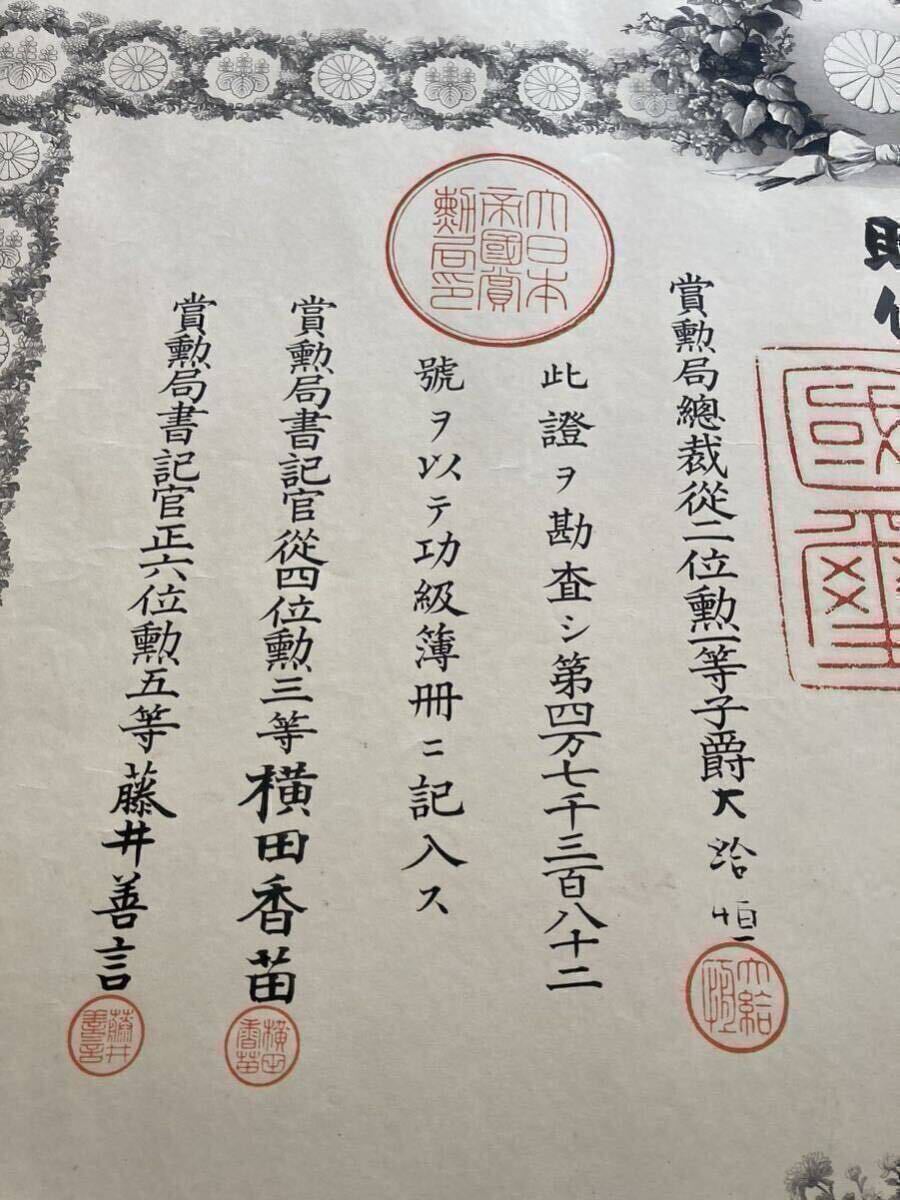 國璽
賞勲局總裁從二位勲一等子爵大給恒
大給恒
大日本帝國賞勲局印
此證ヲ勘査シ第四万七千三百八十二
號ヲ以テ功級簿册ニ記入ス
賞勲局書記官從四位勲三等横田香苗
横田香苗
賞勲局書記官正六位勲五等藤井善言
藤井善言